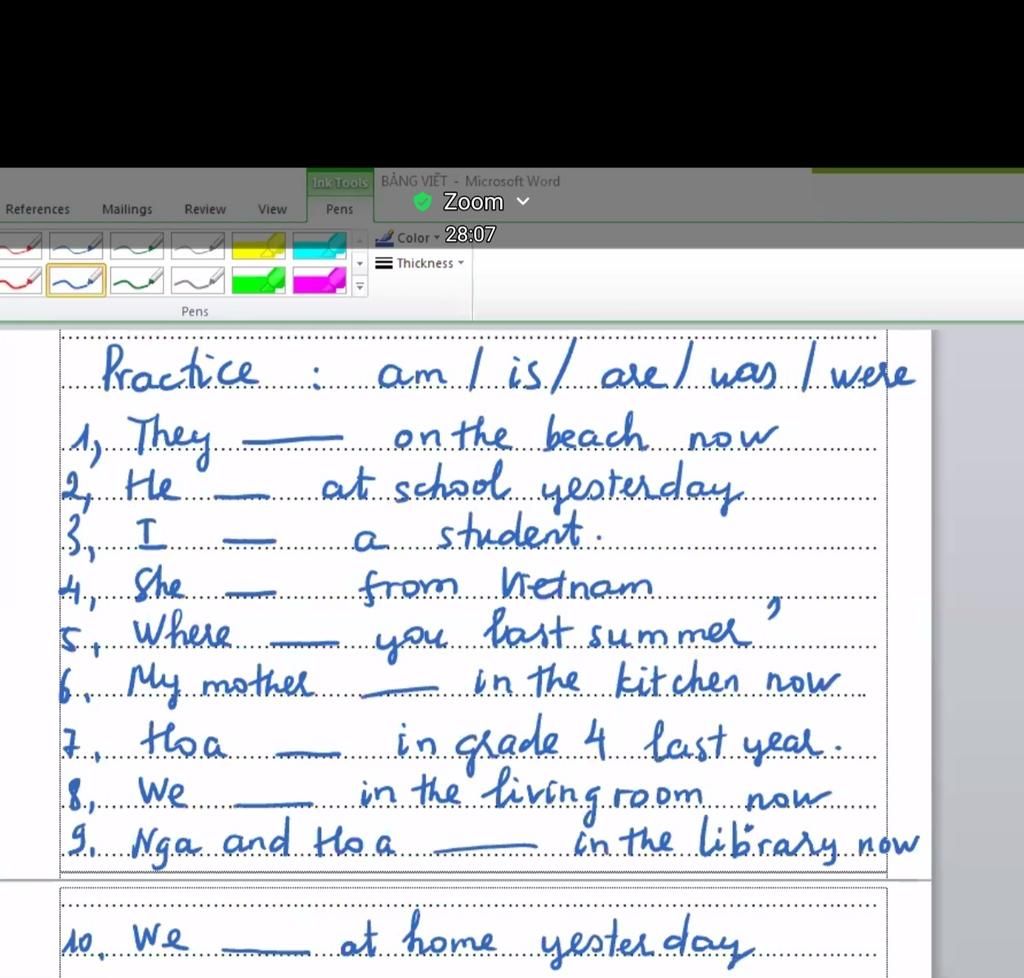 Ink Tools BẢNG VIẾT - Microsoft Word
Zoom
References Mailings Review View Pens
Color 28:07
Thickness
Pens
Practice : am / is / are / was / were
1, They ____ on the beach now
2, He ___ at school yesterday
3, I ___ a student.
4, She ___ from Vietnam
5. Where ____ you last summer ?
6. My mother ____ in the kitchen now
7. Hoa ____ in grade 4 last year.
8, We ____ in the living room now
9. Nga and Hoa _____ in the library now
10. We ____ at home yesterday